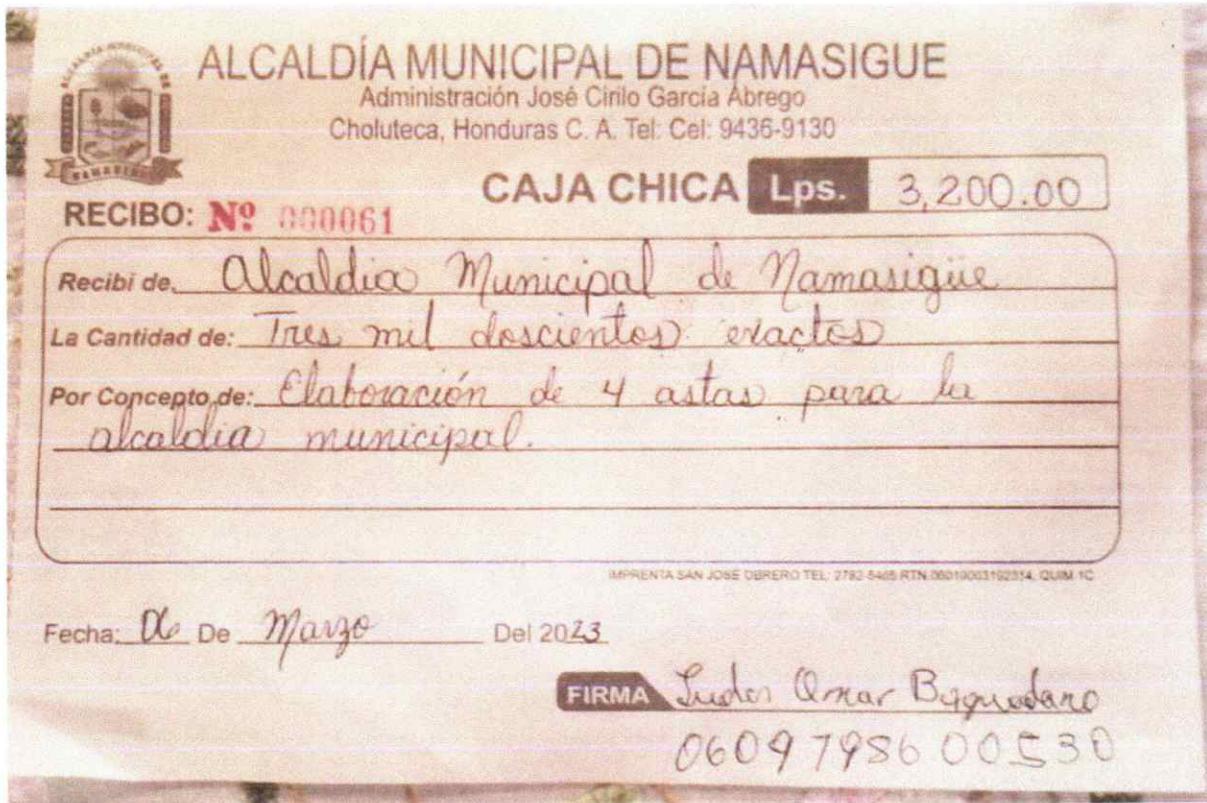 ALCALDÍA MUNICIPAL DE NAMASIGUE
Administración José Cirilo García Ábrego
Choluteca, Honduras C. A. Tel: Cel: 9436-9130
CAJA CHICA Lps. 3,200.00
RECIBO: Nº 000061
Recibi de. Alcaldia Municipal de Namasigüe
La Cantidad de: Tres mil doscientos exactos
Por Concepto de: Elaboración de 4 astas para la
alcaldia municipal.
IMPRENTA SAN JOSE OBRERO TEL: 2782-5465 RTN
Fecha: 06 De Marzo Del 2023
FIRMA Omar